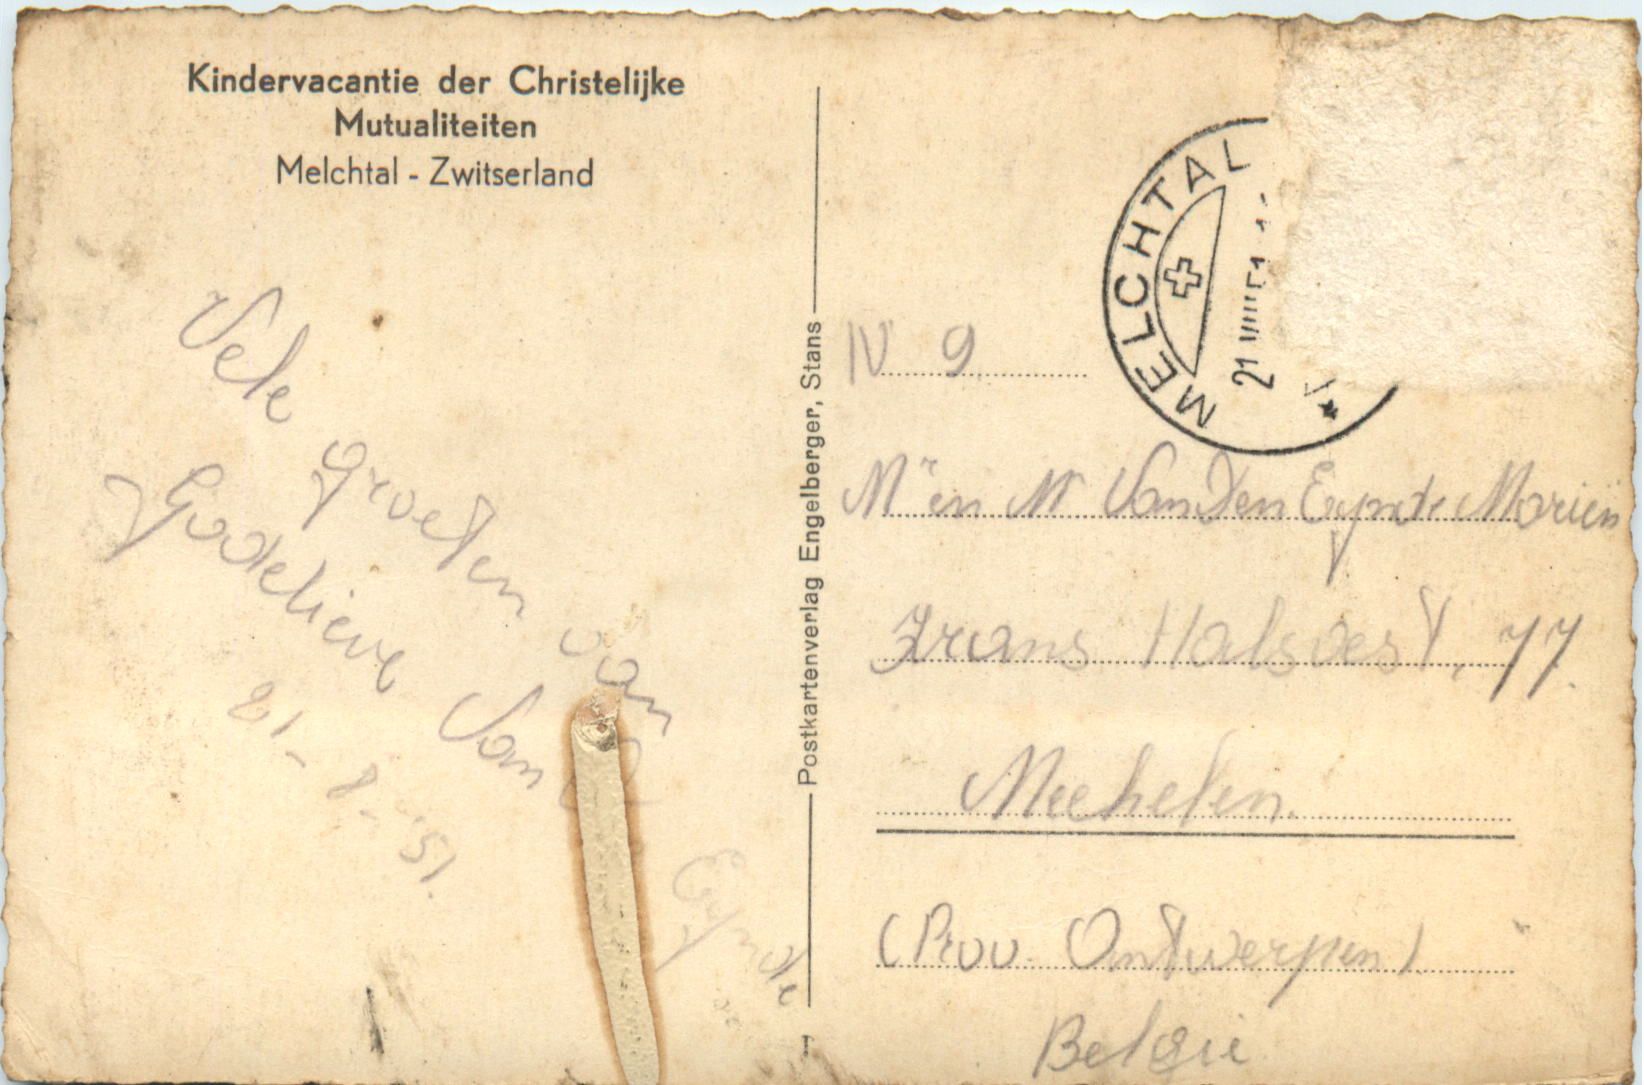 Kindervacantie der Christelijke
Mutualiteiten
Melchtal - Zwitserland
Vele groeten van
Godelieve Van Eynde
21-8-'51.
Postkartenverlag Engelberger, Stans
MELCHTAL
21 VIII 51
IV 9
Mr en Mr Van Den Eynde Mariën
Frans Halsvest, 77.
Mechelen.
(Prov. Antwerpen)
België